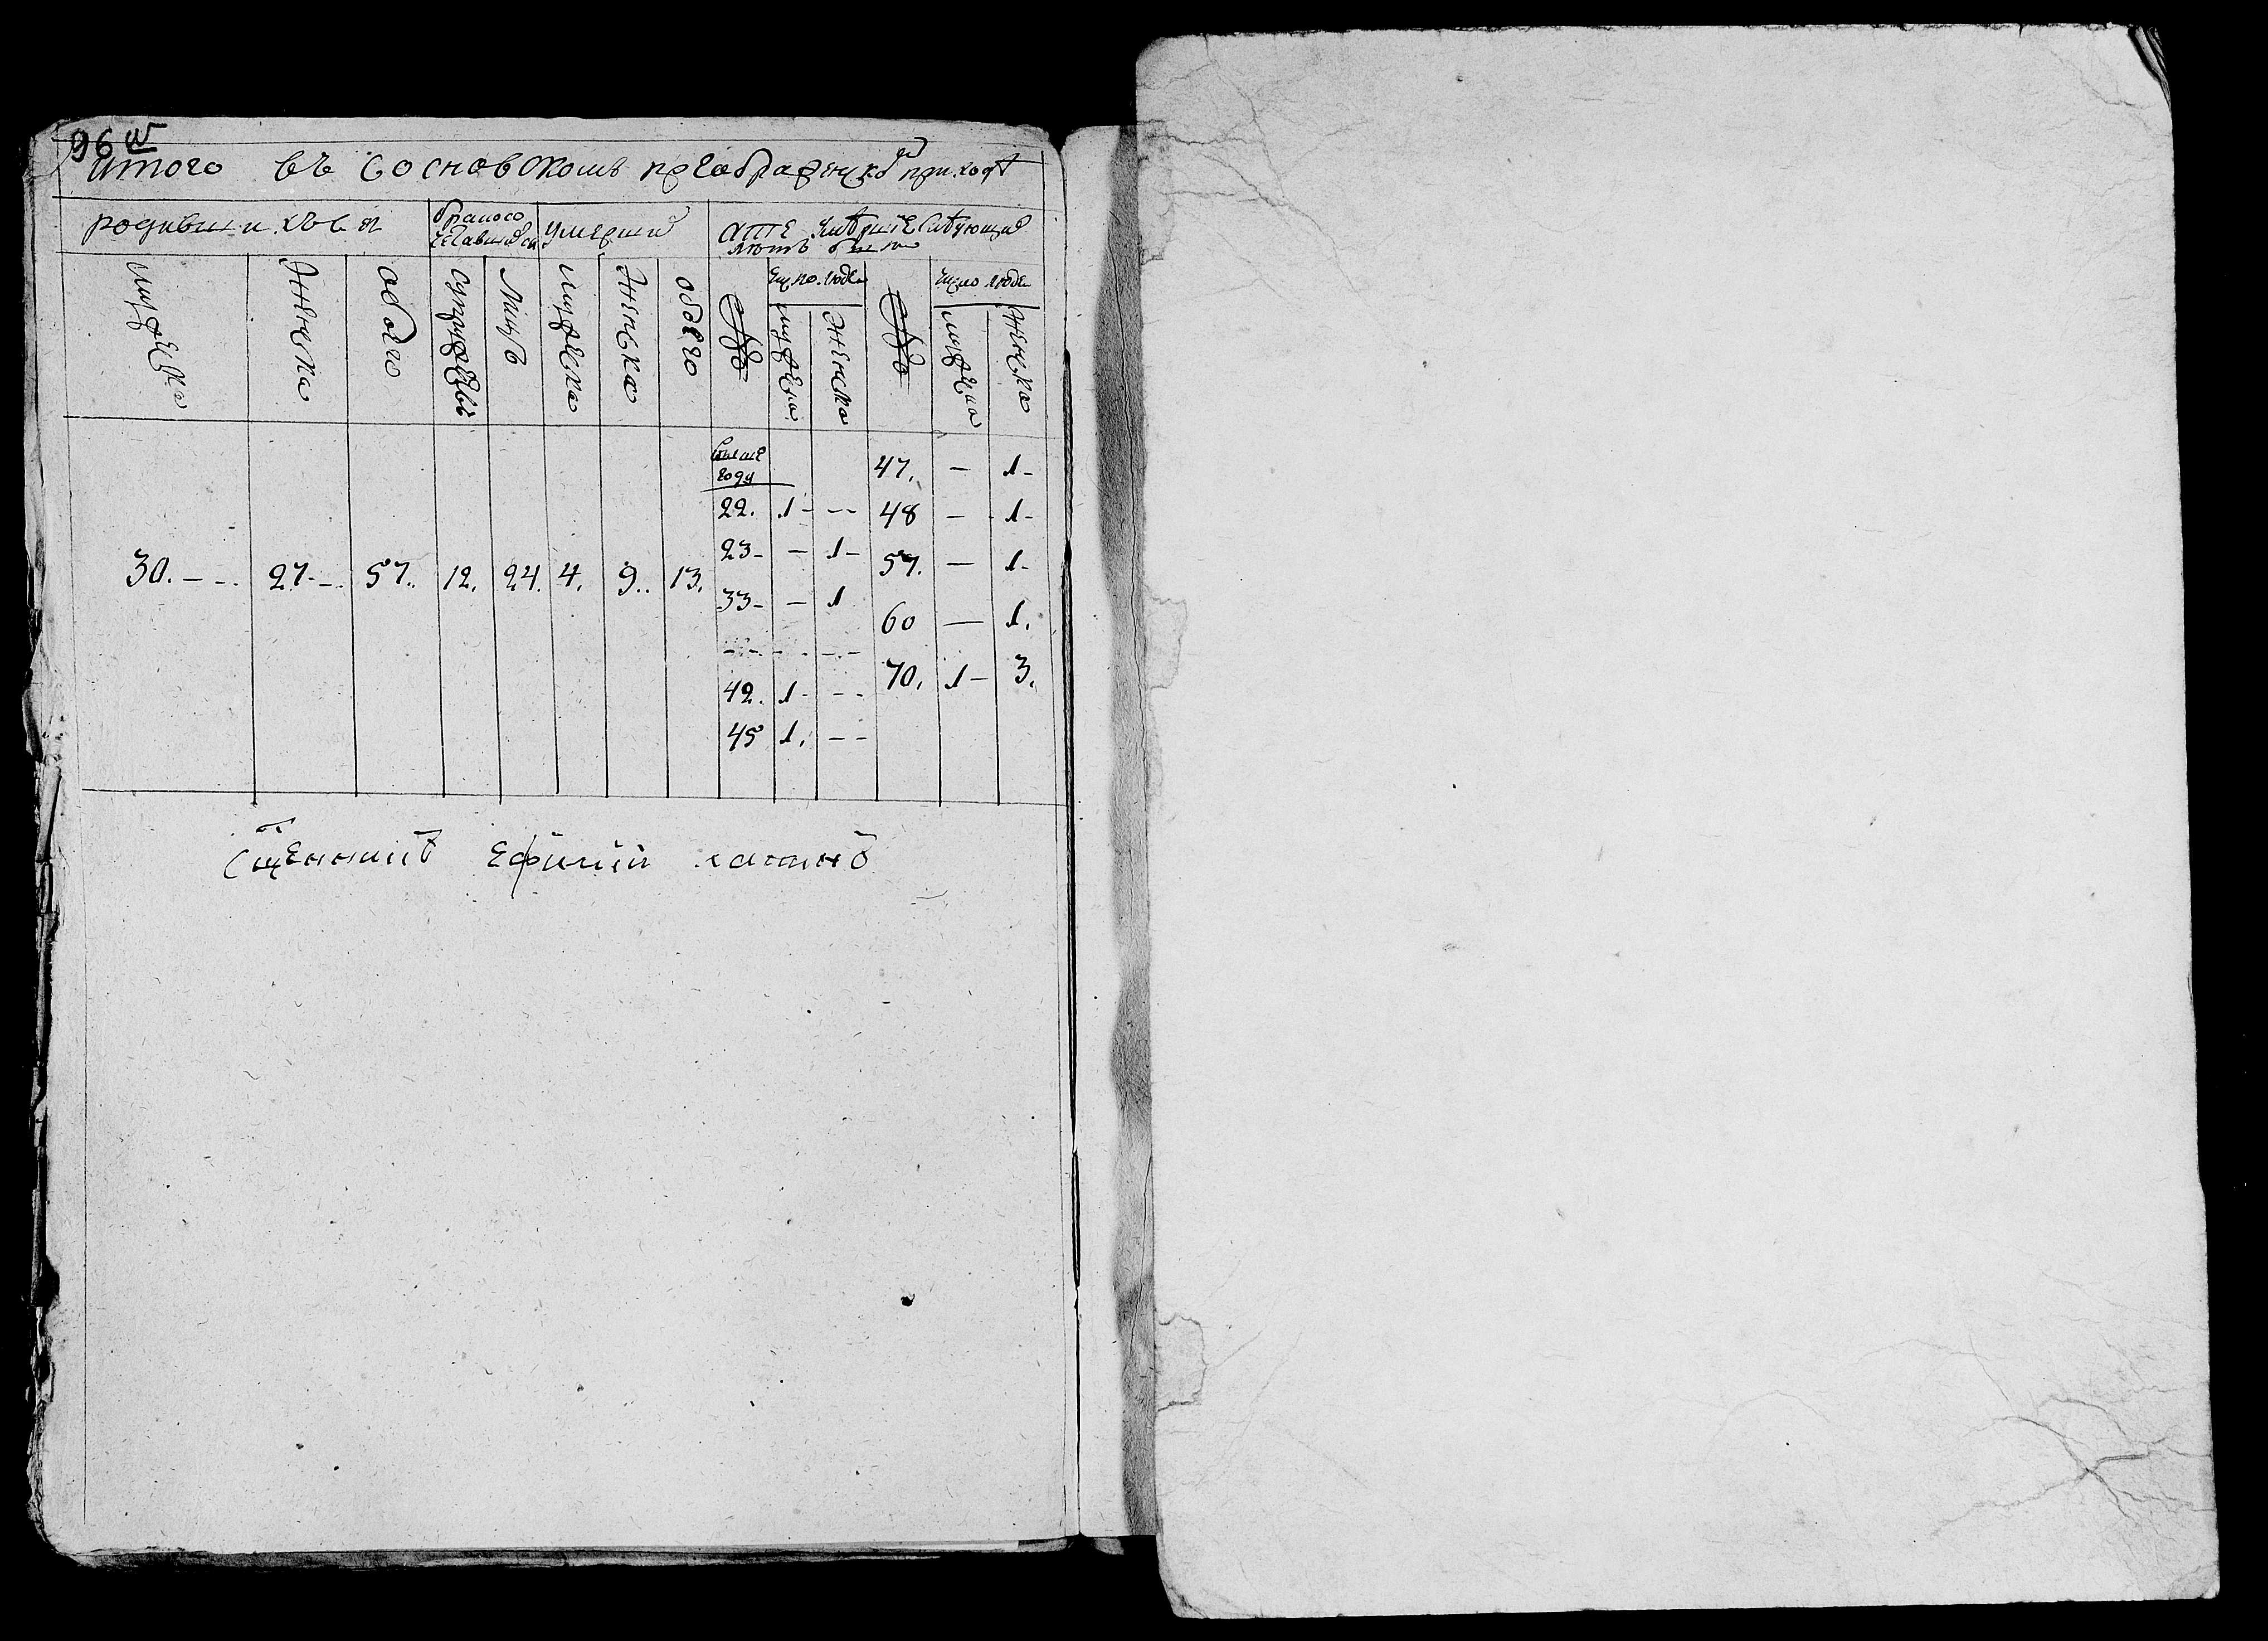 96 об
итого въ Сосновскомъ преображенско приходѣ
родившихъся
бракосо
четавшихся
умерши
числ люде
число люде
мужеска
женска
обоего
супружествъ
лицъ
мужеска
женска
обоего
мужеска
женска
мужеска
женска
году
47. — 1-
22. 1- --
48 — 1-
23- — 1-
57. — 1-
30. — 27. — 57. 12. 24. 4. 9.. 13.
33- — 1
60 — 1.
70. 1- 3.
42. 1- --
45 1. --
Сщенникъ Ефимий